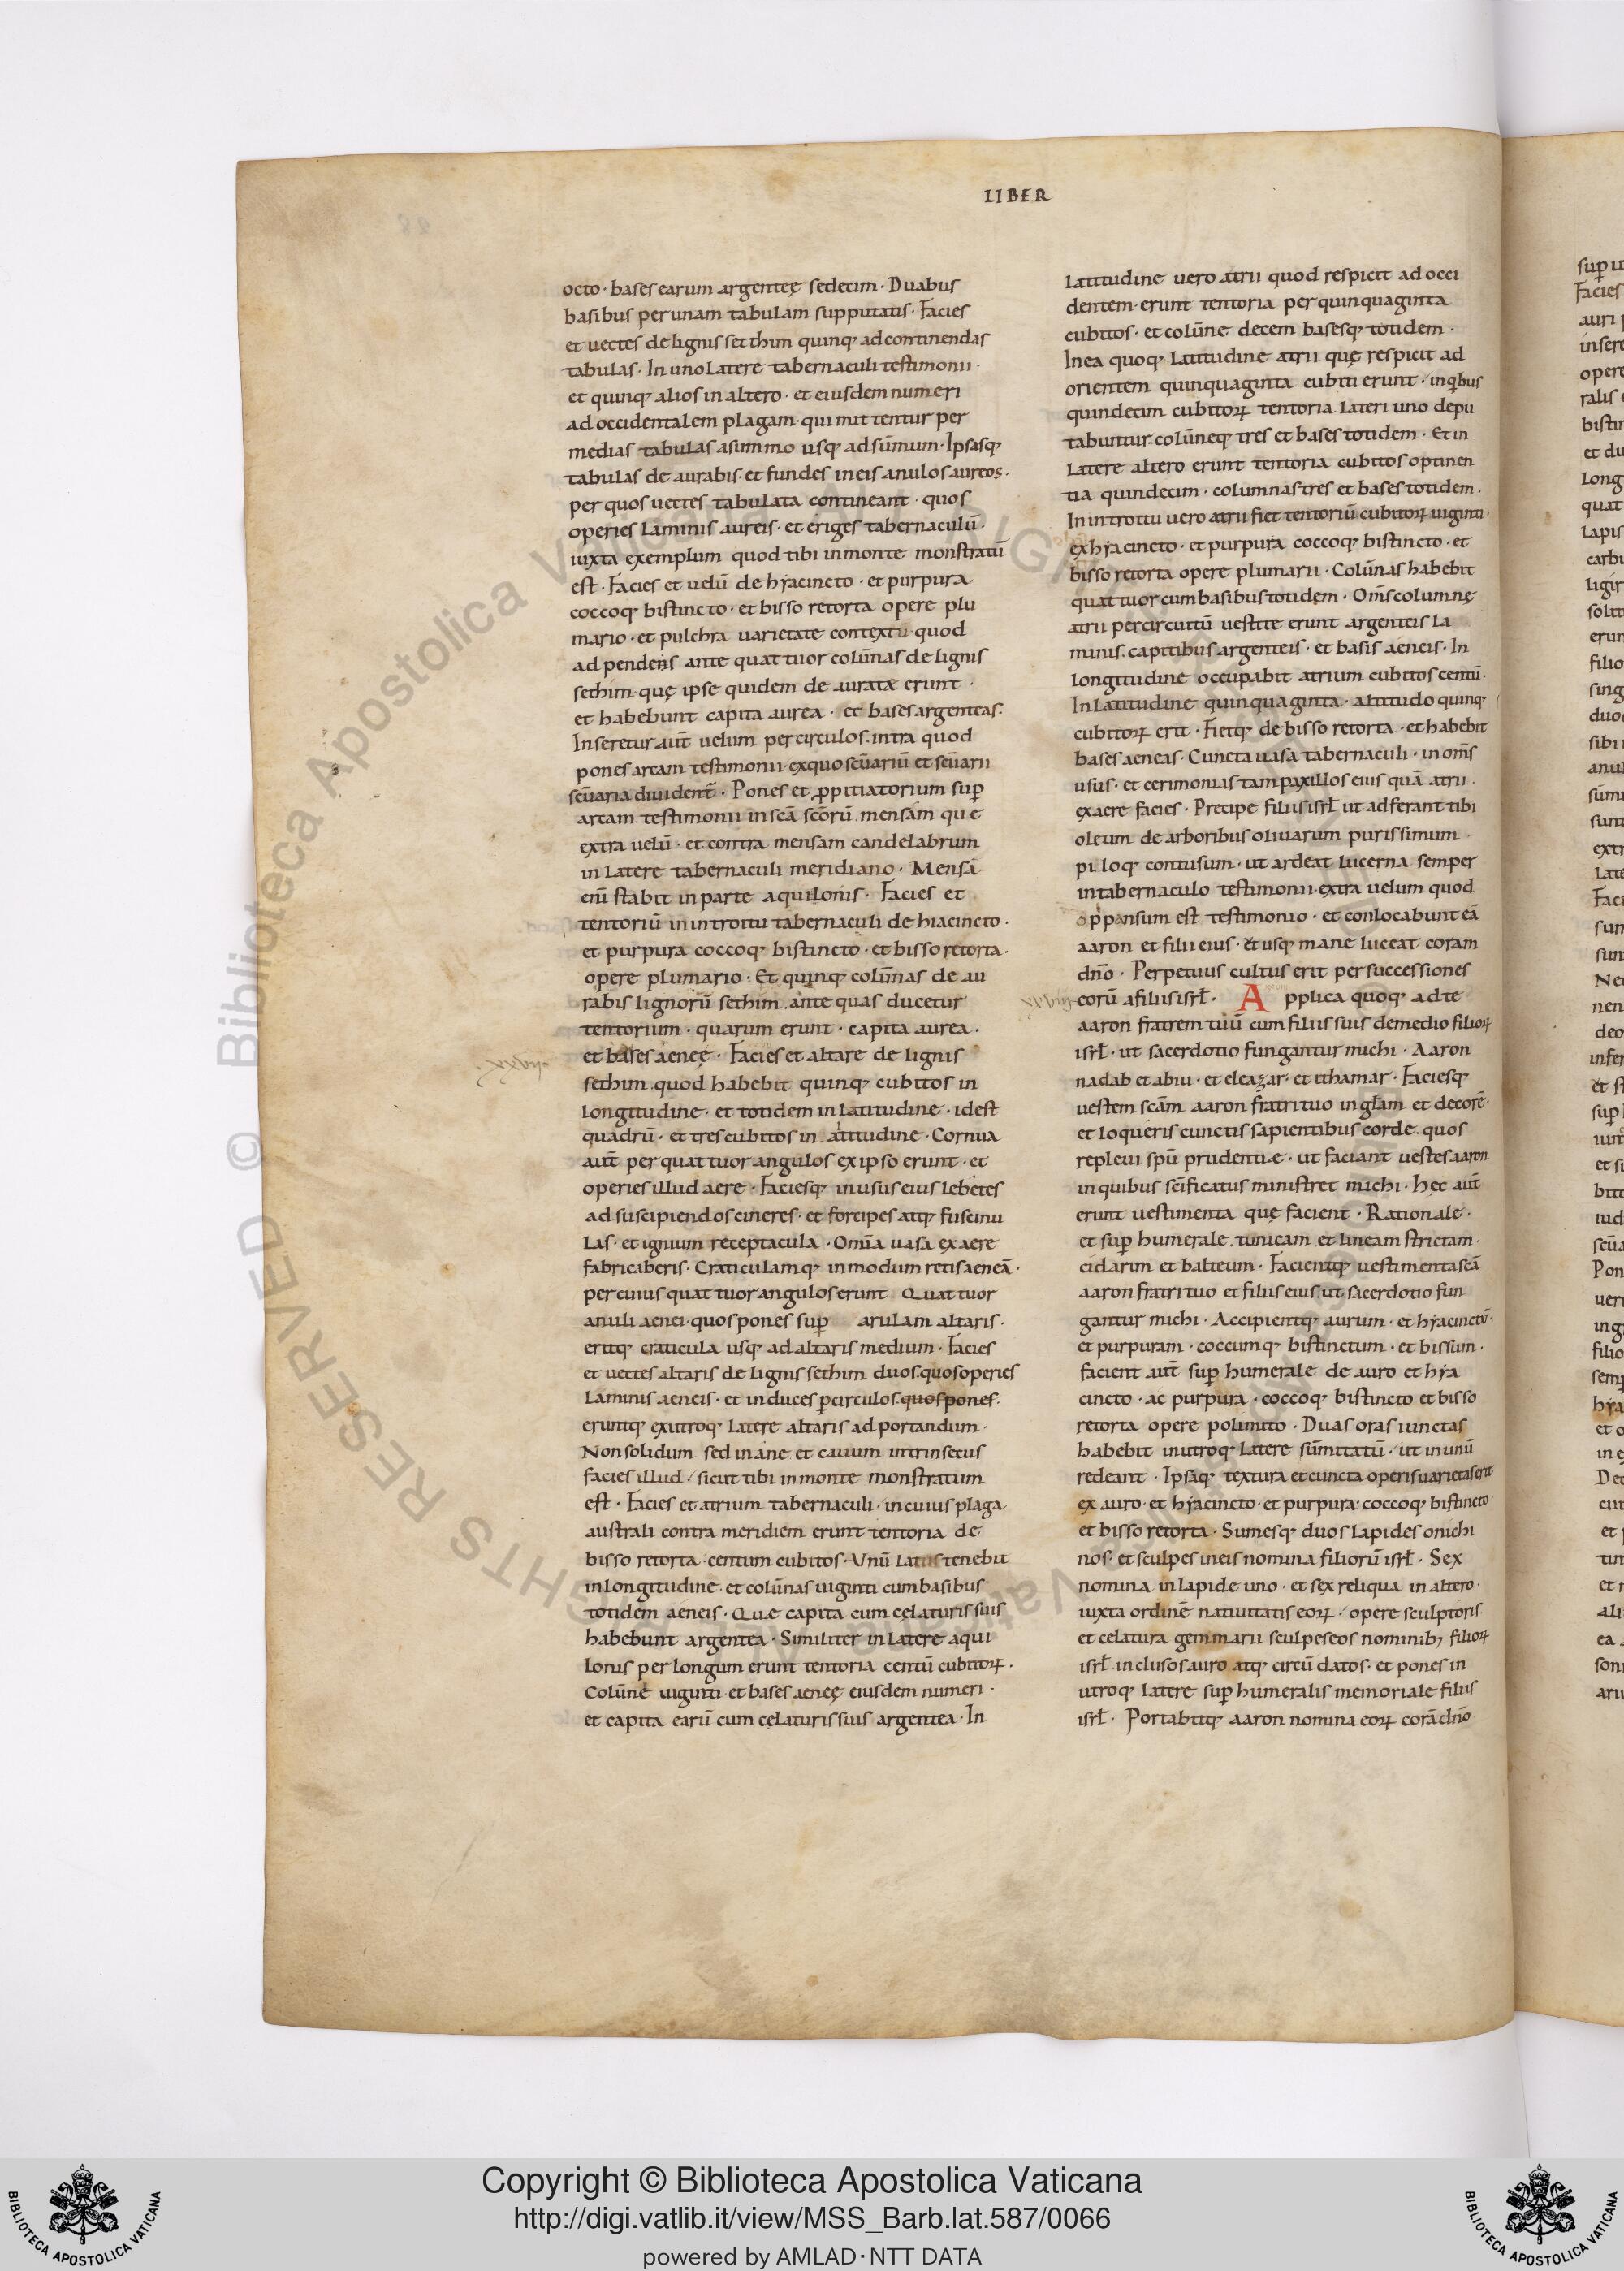 LIBER
octo · bases earum argenteę sedecim · Duabus
basibus per unam tabulam supputatis · Facies
et uectes de lignis setthim quinq; ad continendas
tabulas · In uno Latere tabernaculi testimonii ·
et quinq; alios in altero · et eiusdem numeri
ad occidentalem plagam · qui mittentur per
medias tabulas a summo usq; ad sūmum · Ipsasq;
tabulas de aurabis · et fundes in eis anulos aureos ·
per quos uectes tabulata contineant · quos
operies Laminis aureis · et eriges tabernaculū ·
iuxta exemplum quod tibi in monte monstratū
est · Facies et uelū de hyacincto · et purpura
coccoq; bistincto · et bisso retorta opere plu
mario · et pulchra uarietate contextū quod
adpendens ante quattuor colūnas de lignis
sethim · quę ipse quidem de auratæ erunt ·
et habebunt capita aurea · et bases argenteas ·
Inseretur aūt uelum per circulos · intra quod
pones arcam testimonii · ex quo scūariū et scūarii
scūaria diuident̄ · Pones et ꝓpitiatorium suꝑ
arcam testimonii in scā scōrū · mensam que
extra uelū · et contra mensam candelabrum
in Latere tabernaculi meridiano · Mensā
enī stabit in parte aquilonis · Facies et
tentoriū in introitu tabernaculi de hiacincto ·
et purpura coccoq; bistincto · et bisso retorta ·
opere plumario · Et quinq; colūnas de au
rabis lignorū sethim · ante quas ducetur
tentorium · quarum erunt · capita aurea ·
et bases aeneę · Facies et altare de lignis
sethim · quod habebit quinq; cubitos in
longitudine · et totidem in Latitudine · idest
quadrū · et tres cubitos in altitudine · Cornua
aūt per quattuor angulos ex ipso erunt · et
operies illud aere · Faciesq; in usus eius lebetes
ad suscipiendos cineres · et forcipes atq; fuscinu
Las · et ignium receptacula · Omīa uasa ex aere
fabricaberis · Craticulamq; in modum retis aeneā ·
per cuius quattuor angulos erunt Quattuor
anuli aenei · quos pones suꝑ arulam altaris ·
eritq; craticula usq; ad altaris medium · Facies
et uectes altaris de Lignis sethim duos · quos operies
Laminis aeneis · et induces ꝑ circulos · quos pones ·
eruntq; ex utroq; Latere altaris ad portandum ·
Non solidum sed inane et cauum intrinsecus
facies illud · sicut tibi in monte monstratum
est · Facies et atrium tabernaculi · in cuius plaga
australi contra meridiem erunt tentoria de
bisso retorta · centum cubitos · Unū Latus tenebit
in longitudine · et colūnas uiginti cum basibus
totidem aeneis · Que capita cum cęlaturis suis
habebunt argentea · Similiter in Latere aqui
lonis per longum erunt tentoria centū cubitoꝝ ·
Colūne uiginti et bases aeneę eiusdem numeri ·
et capita earū cum cęlaturis suis argentea · In
Latitudine uero atrii quod respicit ad occi
dentem · erunt tentoria per quinquaginta
cubitos · et colūne decem basesq; totidem ·
In ea quoq; Latitudine atrii quę respicit ad
orientem quinquaginta cubiti erunt · in qibus
quindecim cubitoꝝ tentoria Lateri uno depu
tabuntur colūneq; tres et bases totidem · Et in
Latere altero erunt tentoria cubitos optinen
tia quindecim · columnas tres et bases totidem ·
In introitu uero atrii fiet tentoriū cubitoꝝ uiginti ·
ex hyacincto · et purpura coccoq; bistincto · et
bisso retorta opere plumarii · Colūnas habebit
quattuor cum basibus totidem · Om̄s columnę
atrii per circuitū uestite erunt argenteis La
minis · capitibus argenteis · et basis aeneis · In
longitudine occupabit atrium cubitos centū ·
In Latitudine quinquaginta · altitudo quinq;
cubitoꝝ erit · Fietq; de bisso retorta · et habebit
bases aeneas · Cuncta uasa tabernaculi · in om̄s
usus · et cerimonias · tam paxillos eius quā atrii ·
ex aere facies · Precipe filiis isrł ut adferant tibi
oleum de arboribus oliuarum purissimum
piloq; contusum · ut ardeat lucerna semper
in tabernaculo testimonii · extra uelum quod
oppansum est testimonio · et conlocabunt eā
aaron et filii eius · et usq; mane luceat coram
dn̄o · Perpetuus cultus erit per successiones
eorū a filiis isrł · Applica quoq; ad te
aaron fratrem tuū cum filiis suis de medio filioꝝ
isrł · ut sacerdotio fungantur michi · Aaron
nadab et abiu · et eleazar · et ithamar · Faciesq;
uestem scām aaron fratri tuo in glam et decorē ·
et loqueris cunctis sapientibus corde · quos
repleui spū prudentiæ · ut faciant uestes aaron
in quibus scīficatus ministret michi · Hęc aūt
erunt uestimenta quę facient · Rationale ·
et suꝑ humerale · tunicam et lineam strictam ·
cidarim et balteum · Facientq; uestimenta scā
aaron fratri tuo et filiis eius · ut sacerdotio fun
gantur michi · Accipientq; aurum · et hyacinctū ·
et purpuram · coccumq; bistinctum · et bissum ·
facient aūt suꝑ humerale de auro et hya
cincto · ac purpura · coccoq; bistincto et bisso
retorta opere polimito · Duas oras iunctas
habebit in utroq; Latere sūmitatū · ut in unū
redeant · Ipsaq; textura et cuncta operis uarietas erit
ex auro · et hyacincto · et purpura · coccoq; bistincto ·
et bisso retorta · Sumesq; duos lapides onichi
nos · et sculpes in eis nomina filiorū isrł · Sex
nomina in lapide uno · et sex reliqua in altero ·
iuxta ordinē natiuitatis eoꝝ · opere sculptoris
et celatura gemmarii sculpes eos nominib; filioꝝ
isrł · inclusos auro atq; circūdatos · et pones in
utroq; Latere suꝑ humeralis memoriale filiis
isrł · Portabitq; aaron nomina eoꝝ corā dn̄o
Copyright © Biblioteca Apostolica Vaticana
http://digi.vatlib.it/view/MSS_Barb.lat.587/0066
powered by AMLAD·NTT DATA
BIBLIOTECA APOSTOLICA VATICANA
BIBLIOTECA APOSTOLICA VATICANA